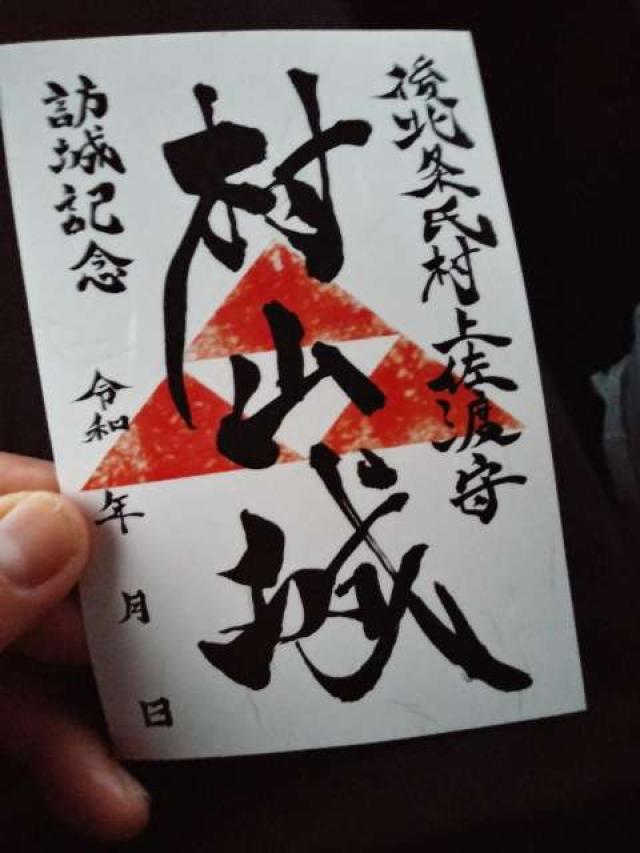 後北条氏村上佐渡守
村山城
訪城記念
令和
年
月
日